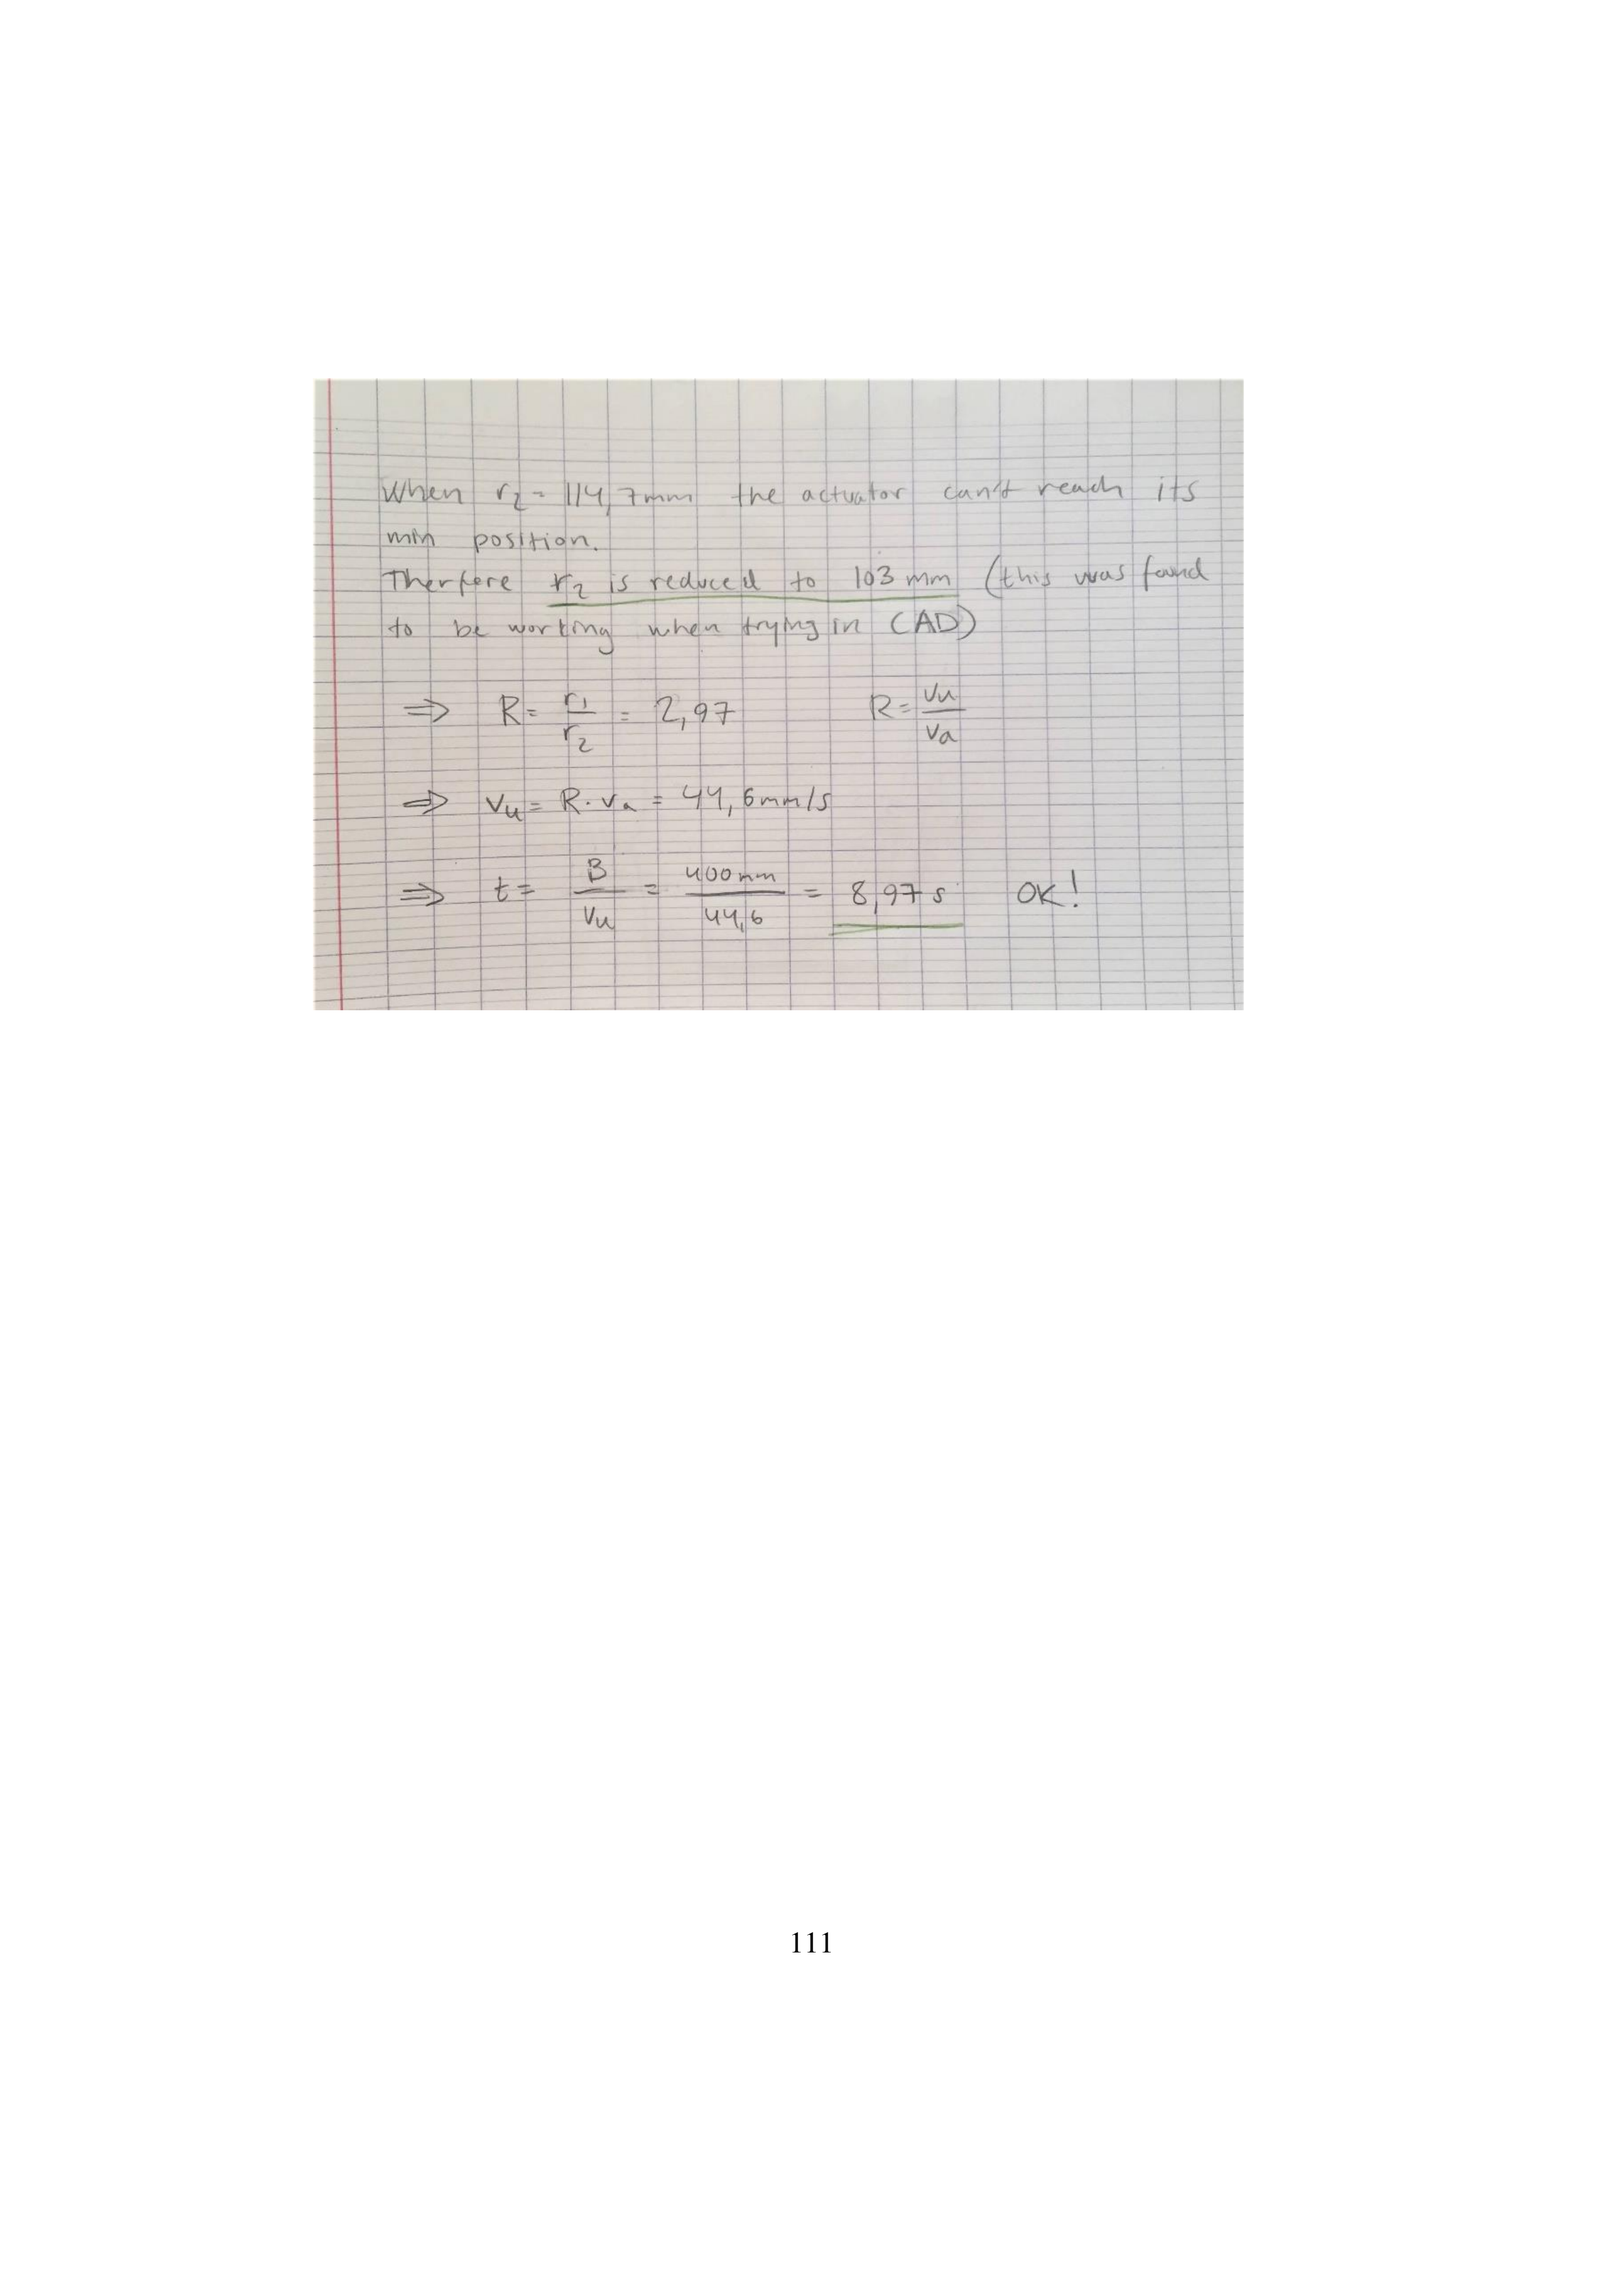 When r₂ = 114,7mm the actuator can't reach its
min position.
Therfore r₂ is reduced to 103 mm (this was found
to be working when trying in CAD)
⇒ R = r₁/r₂ = 2,97 R = Vu/Va
⇒ Vu = R · Va = 44,6mm/s
⇒ t = B/Vu = 400mm/44,6 = 8,97 s OK!
111